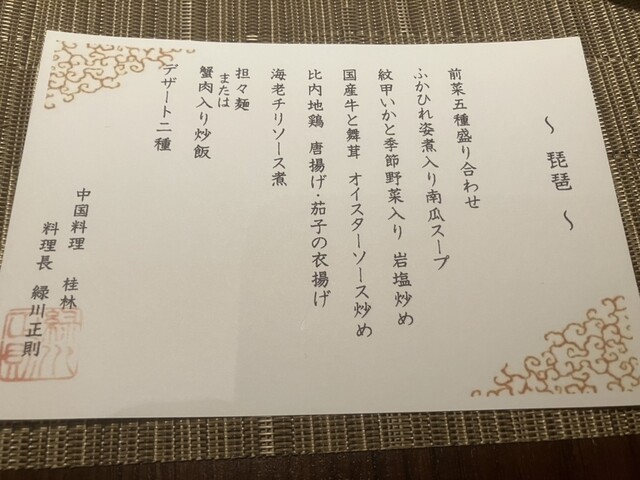 ～ 琵琶 ～
前菜五種盛り合わせ
ふかひれ姿煮入り南瓜スープ
紋甲いかと季節野菜入り 岩塩炒め
国産牛と舞茸 オイスターソース炒め
比内地鶏 唐揚げ・茄子の衣揚げ
海老チリソース煮
担々麺
または
蟹肉入り炒飯
デザート二種
中国料理 桂林
料理長 緑川正則